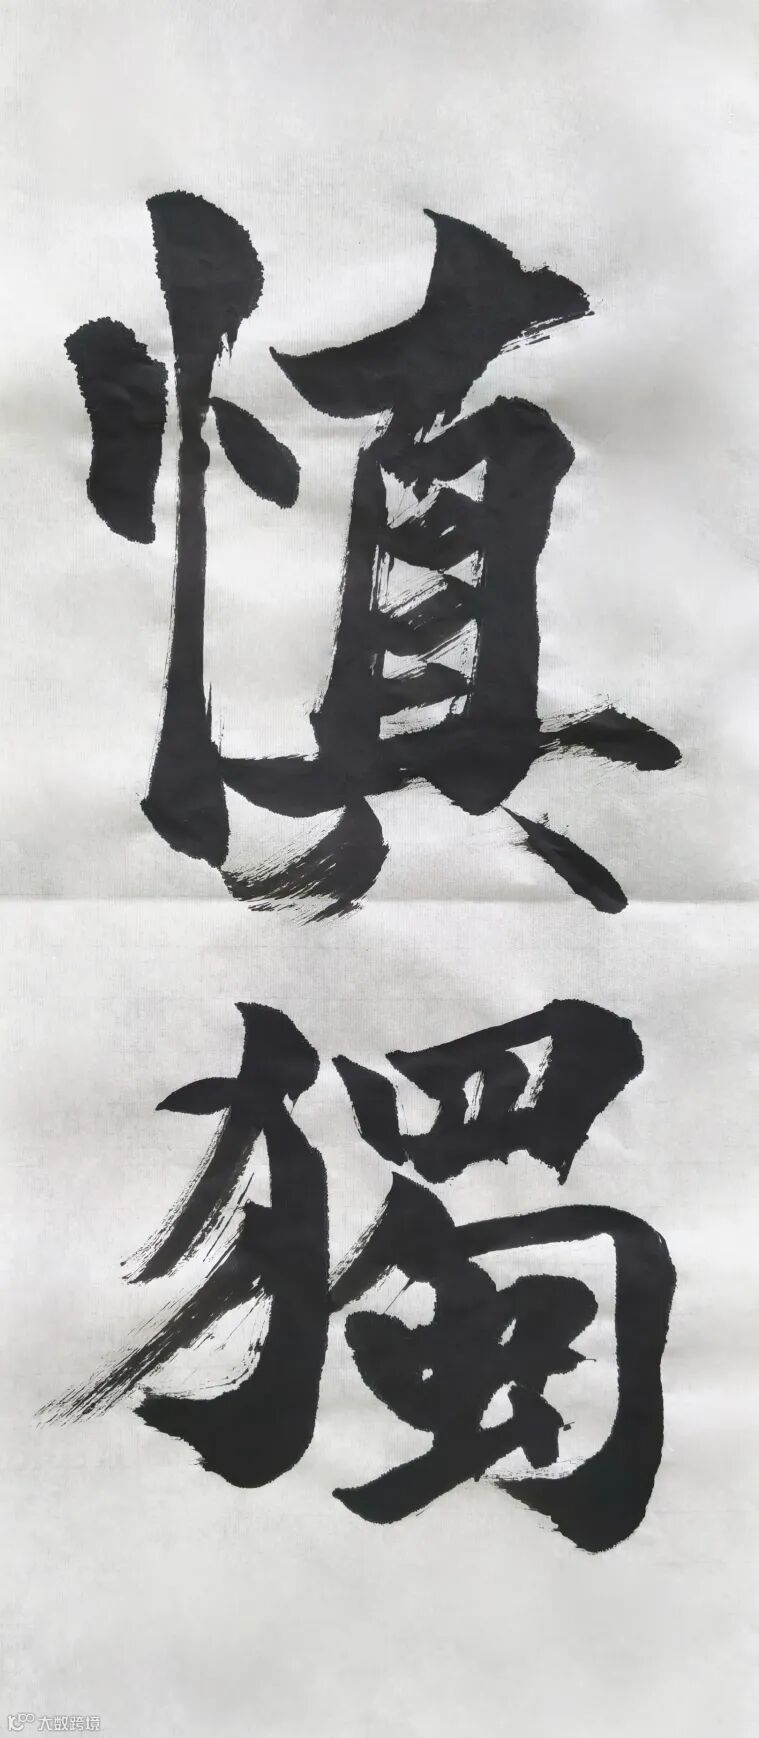 慎獨
大数跨境